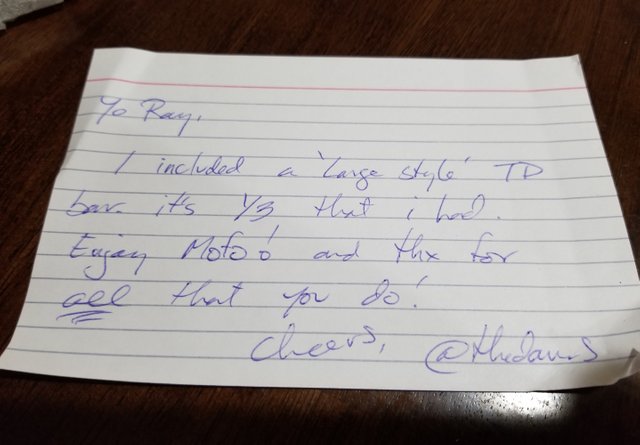 Yo Ray,
I included a 'Large style' TD
bar. it's 1/3 that i had.
Enjoy Mofo! and thx for
all that you do!
Cheers,